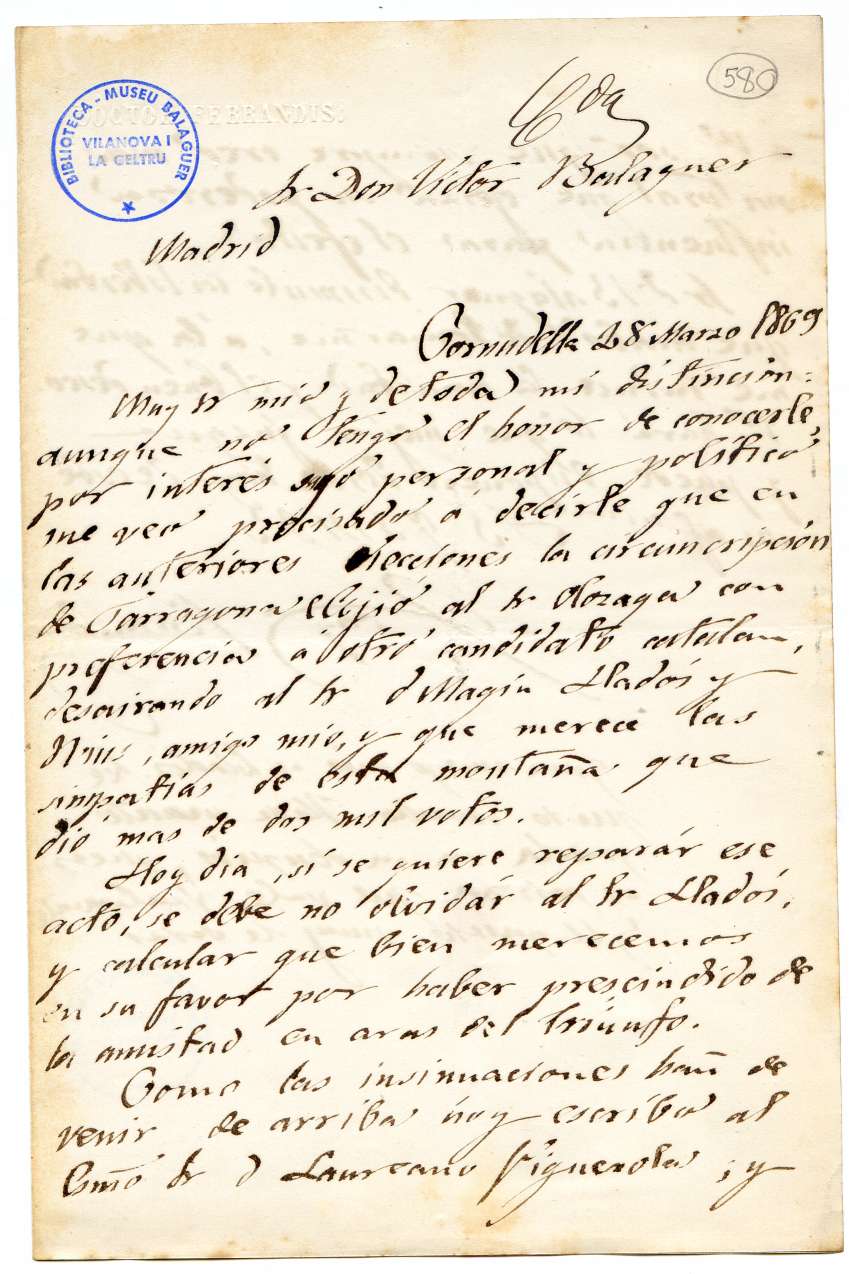 580
BIBLIOTECA - MUSEU BALAGUER
VILANOVA I
LA GELTRU
DOCTOR FERRANDIS.
Cda
Sr Don Victor Balaguer
Madrid
Cornudella 28 Marzo 1869
Muy Sr mio y de toda mi distinción:
aunque no tengo el honor de conocerle,
por interés suyo personal y político
me veo precisado á decirle que en
las anteriores elecciones la circunscripción
de Tarragona elijió al Sr Olozaga con
preferencia á otro candidato catalan,
desairando al Sr d Magin Lladós y
Rius, amigo mio, y que merece las
simpatías de esta montaña que
dió mas de dos mil votos.
Hoy dia, si se quiere reparár ese
acto, se debe no olvidár al Sr Lladós,
y calcular que bien merecemos
en su favor por haber prescindido de
la amistad en aras del triunfo.
Como las insinuaciones han de
venir de arriba hoy escribo al
Esmo Sr d Laureano Figuerola, y